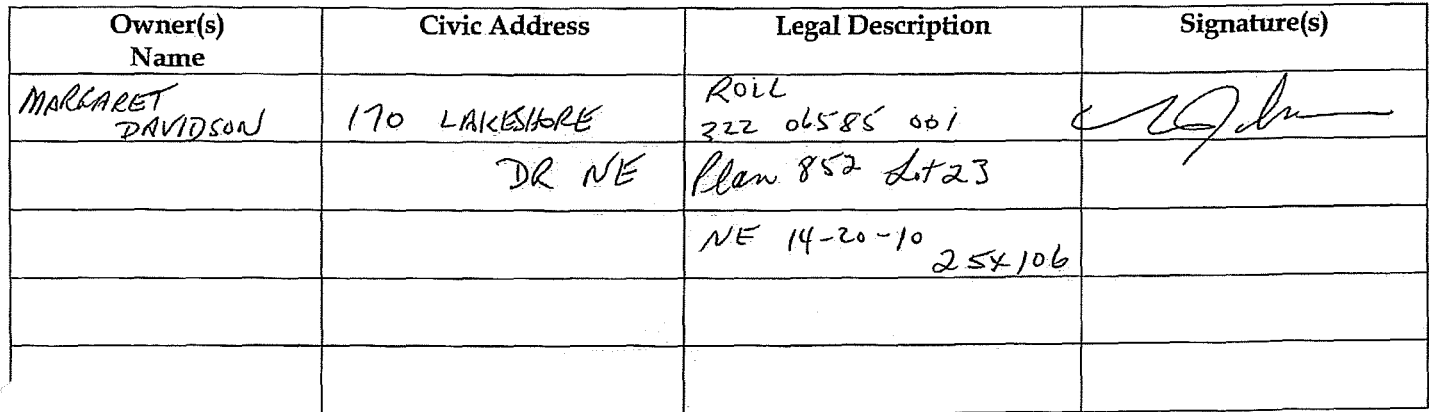 Owner(s)
Name
Civic Address
Legal Description
Signature(s)
MARGARET
DAVIDSON
170 LAKESHORE
DR NE
ROLL
322 06585 001
Plan 852 Lot 23
NE 14-20-10
25x106